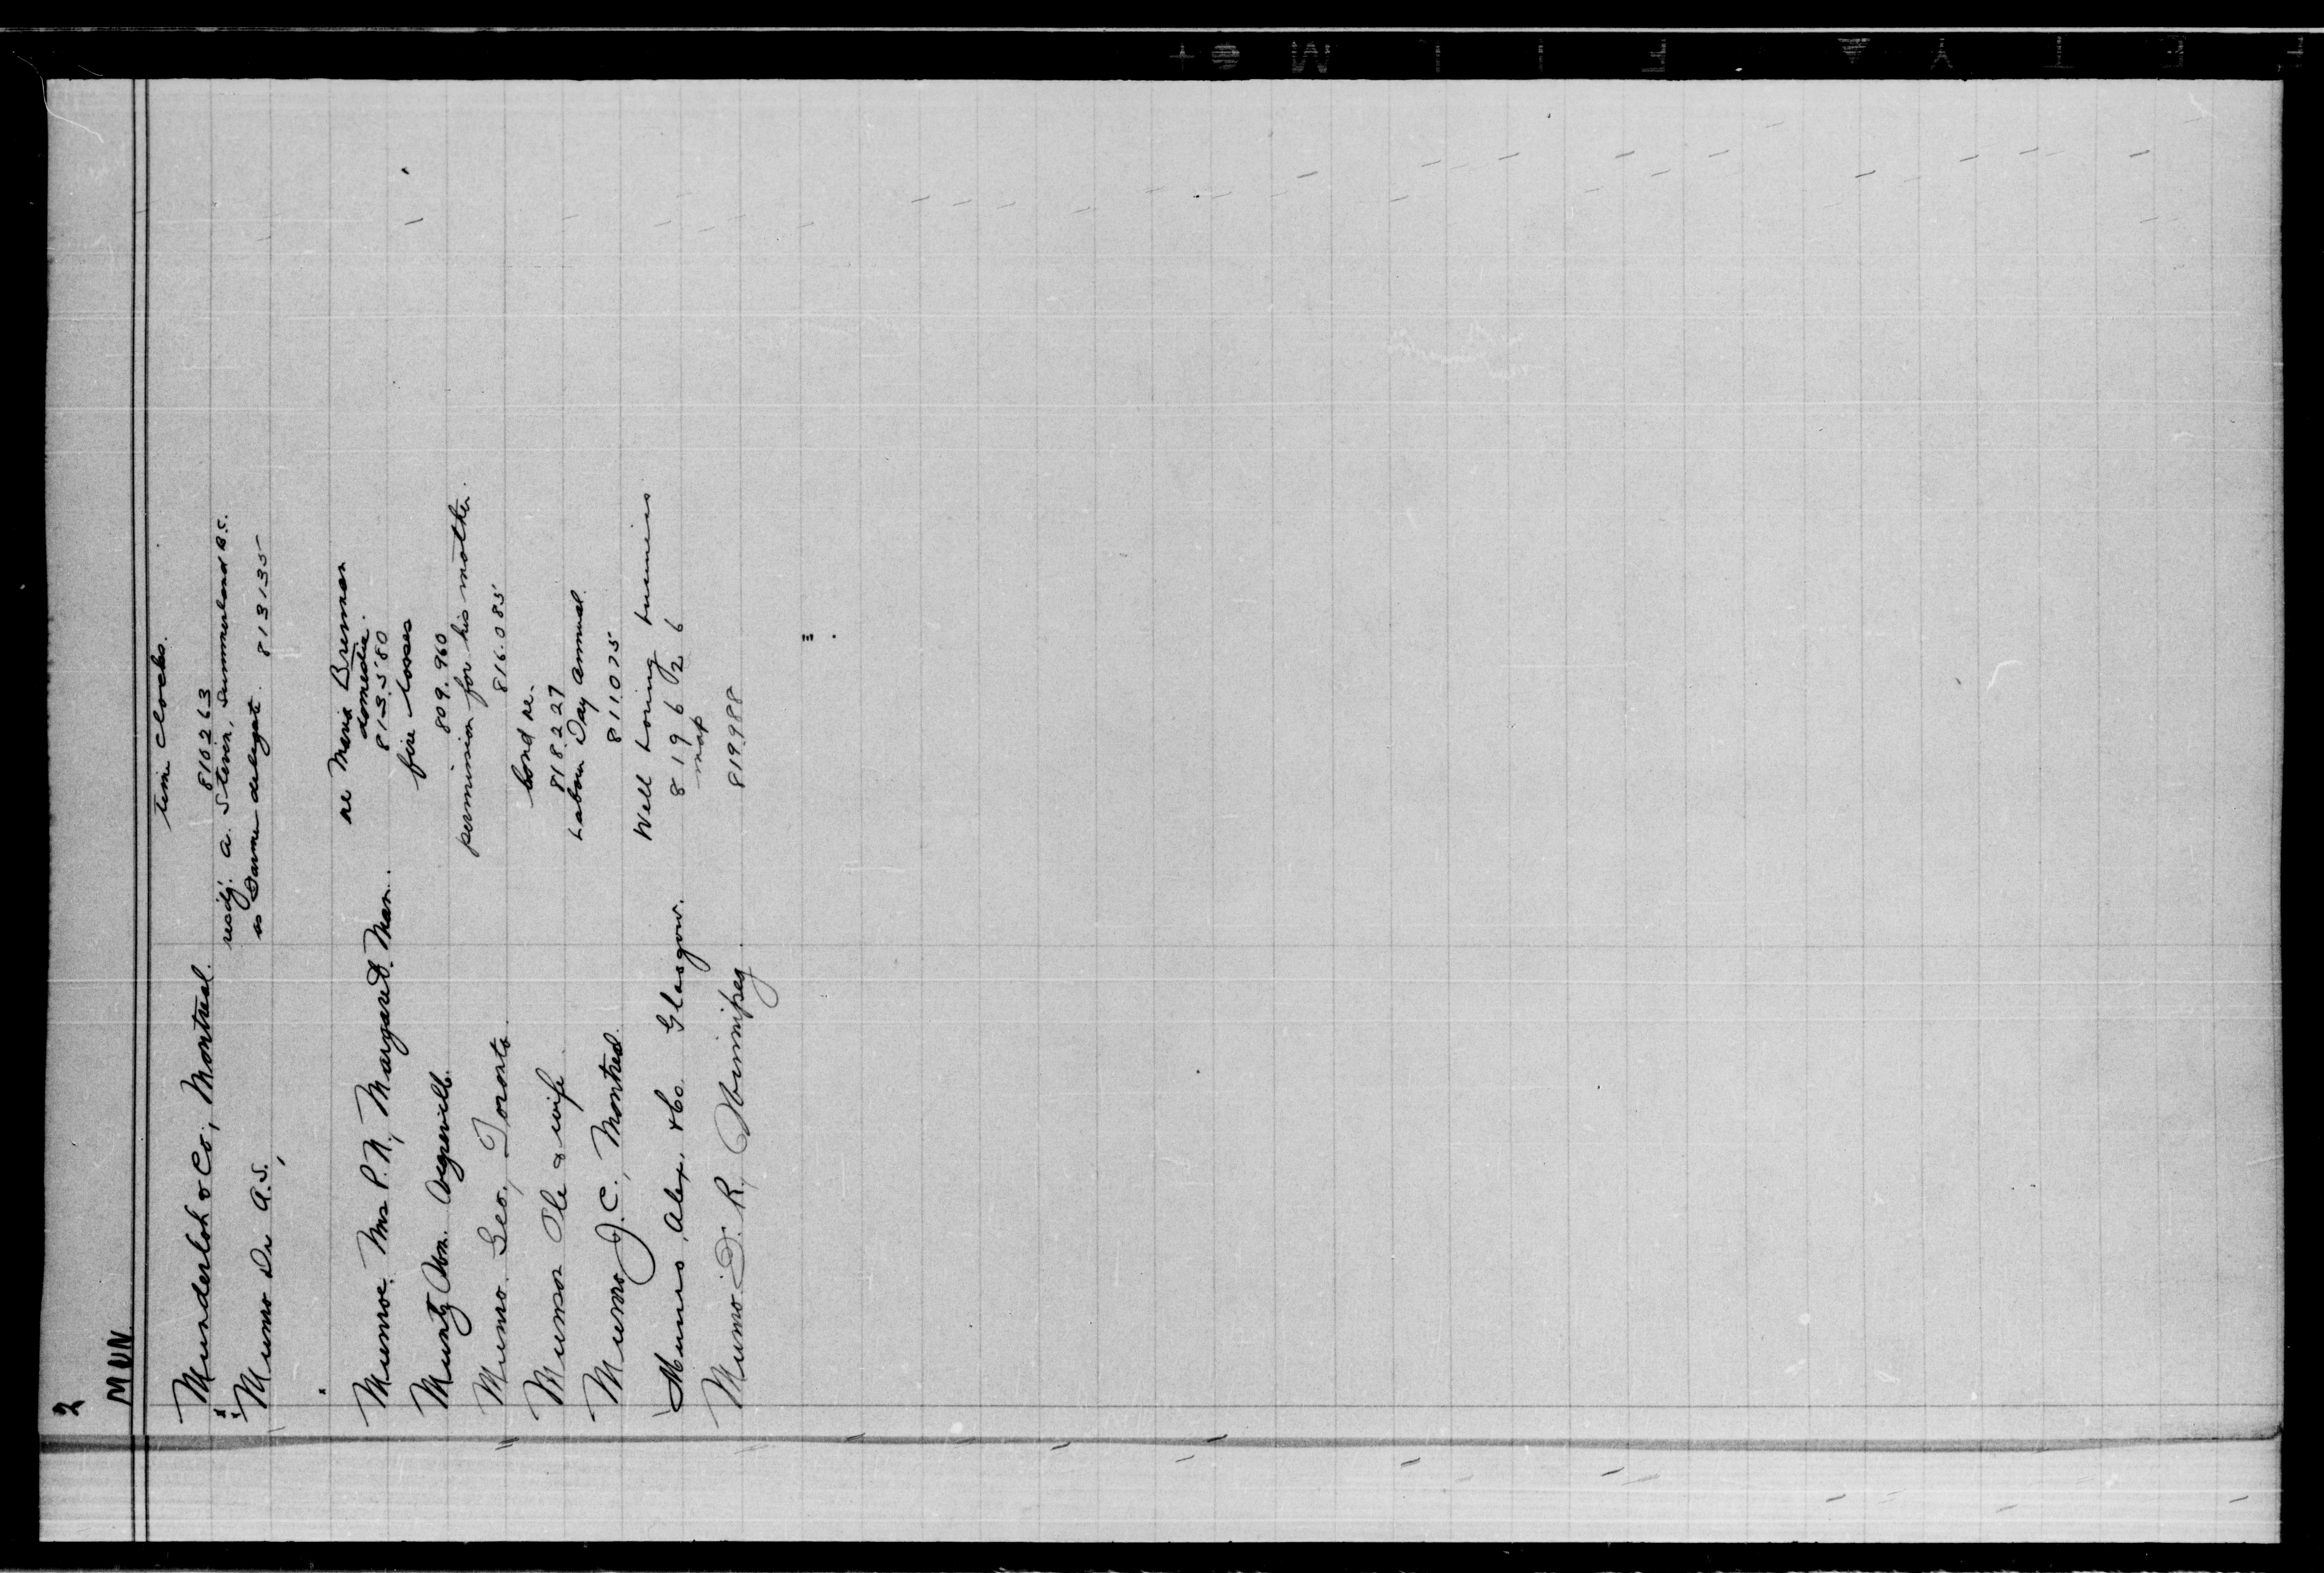 2
MUN
Munderloh & Co., Montreal. time clocks.
810263
Munro Dr A.S., resdg. A. Steven, Summerland B.C.
as Game delegate. 813135
Munroe. Mrs P. N., Margaret. Man. re Maria Brennan
domedia.
813580
Muntz Abm. fire losses
809.960
Munro. Geo., Toronto. permission for his mother.
816.085
Munson Ole & wife bond re.
818227
Munro J. C., Montreal. Labour Day Annual.
811075
Munro, Alex. & Co Glasgow. Well boring
819626
Munro. D. R., Winnipeg. map
819988